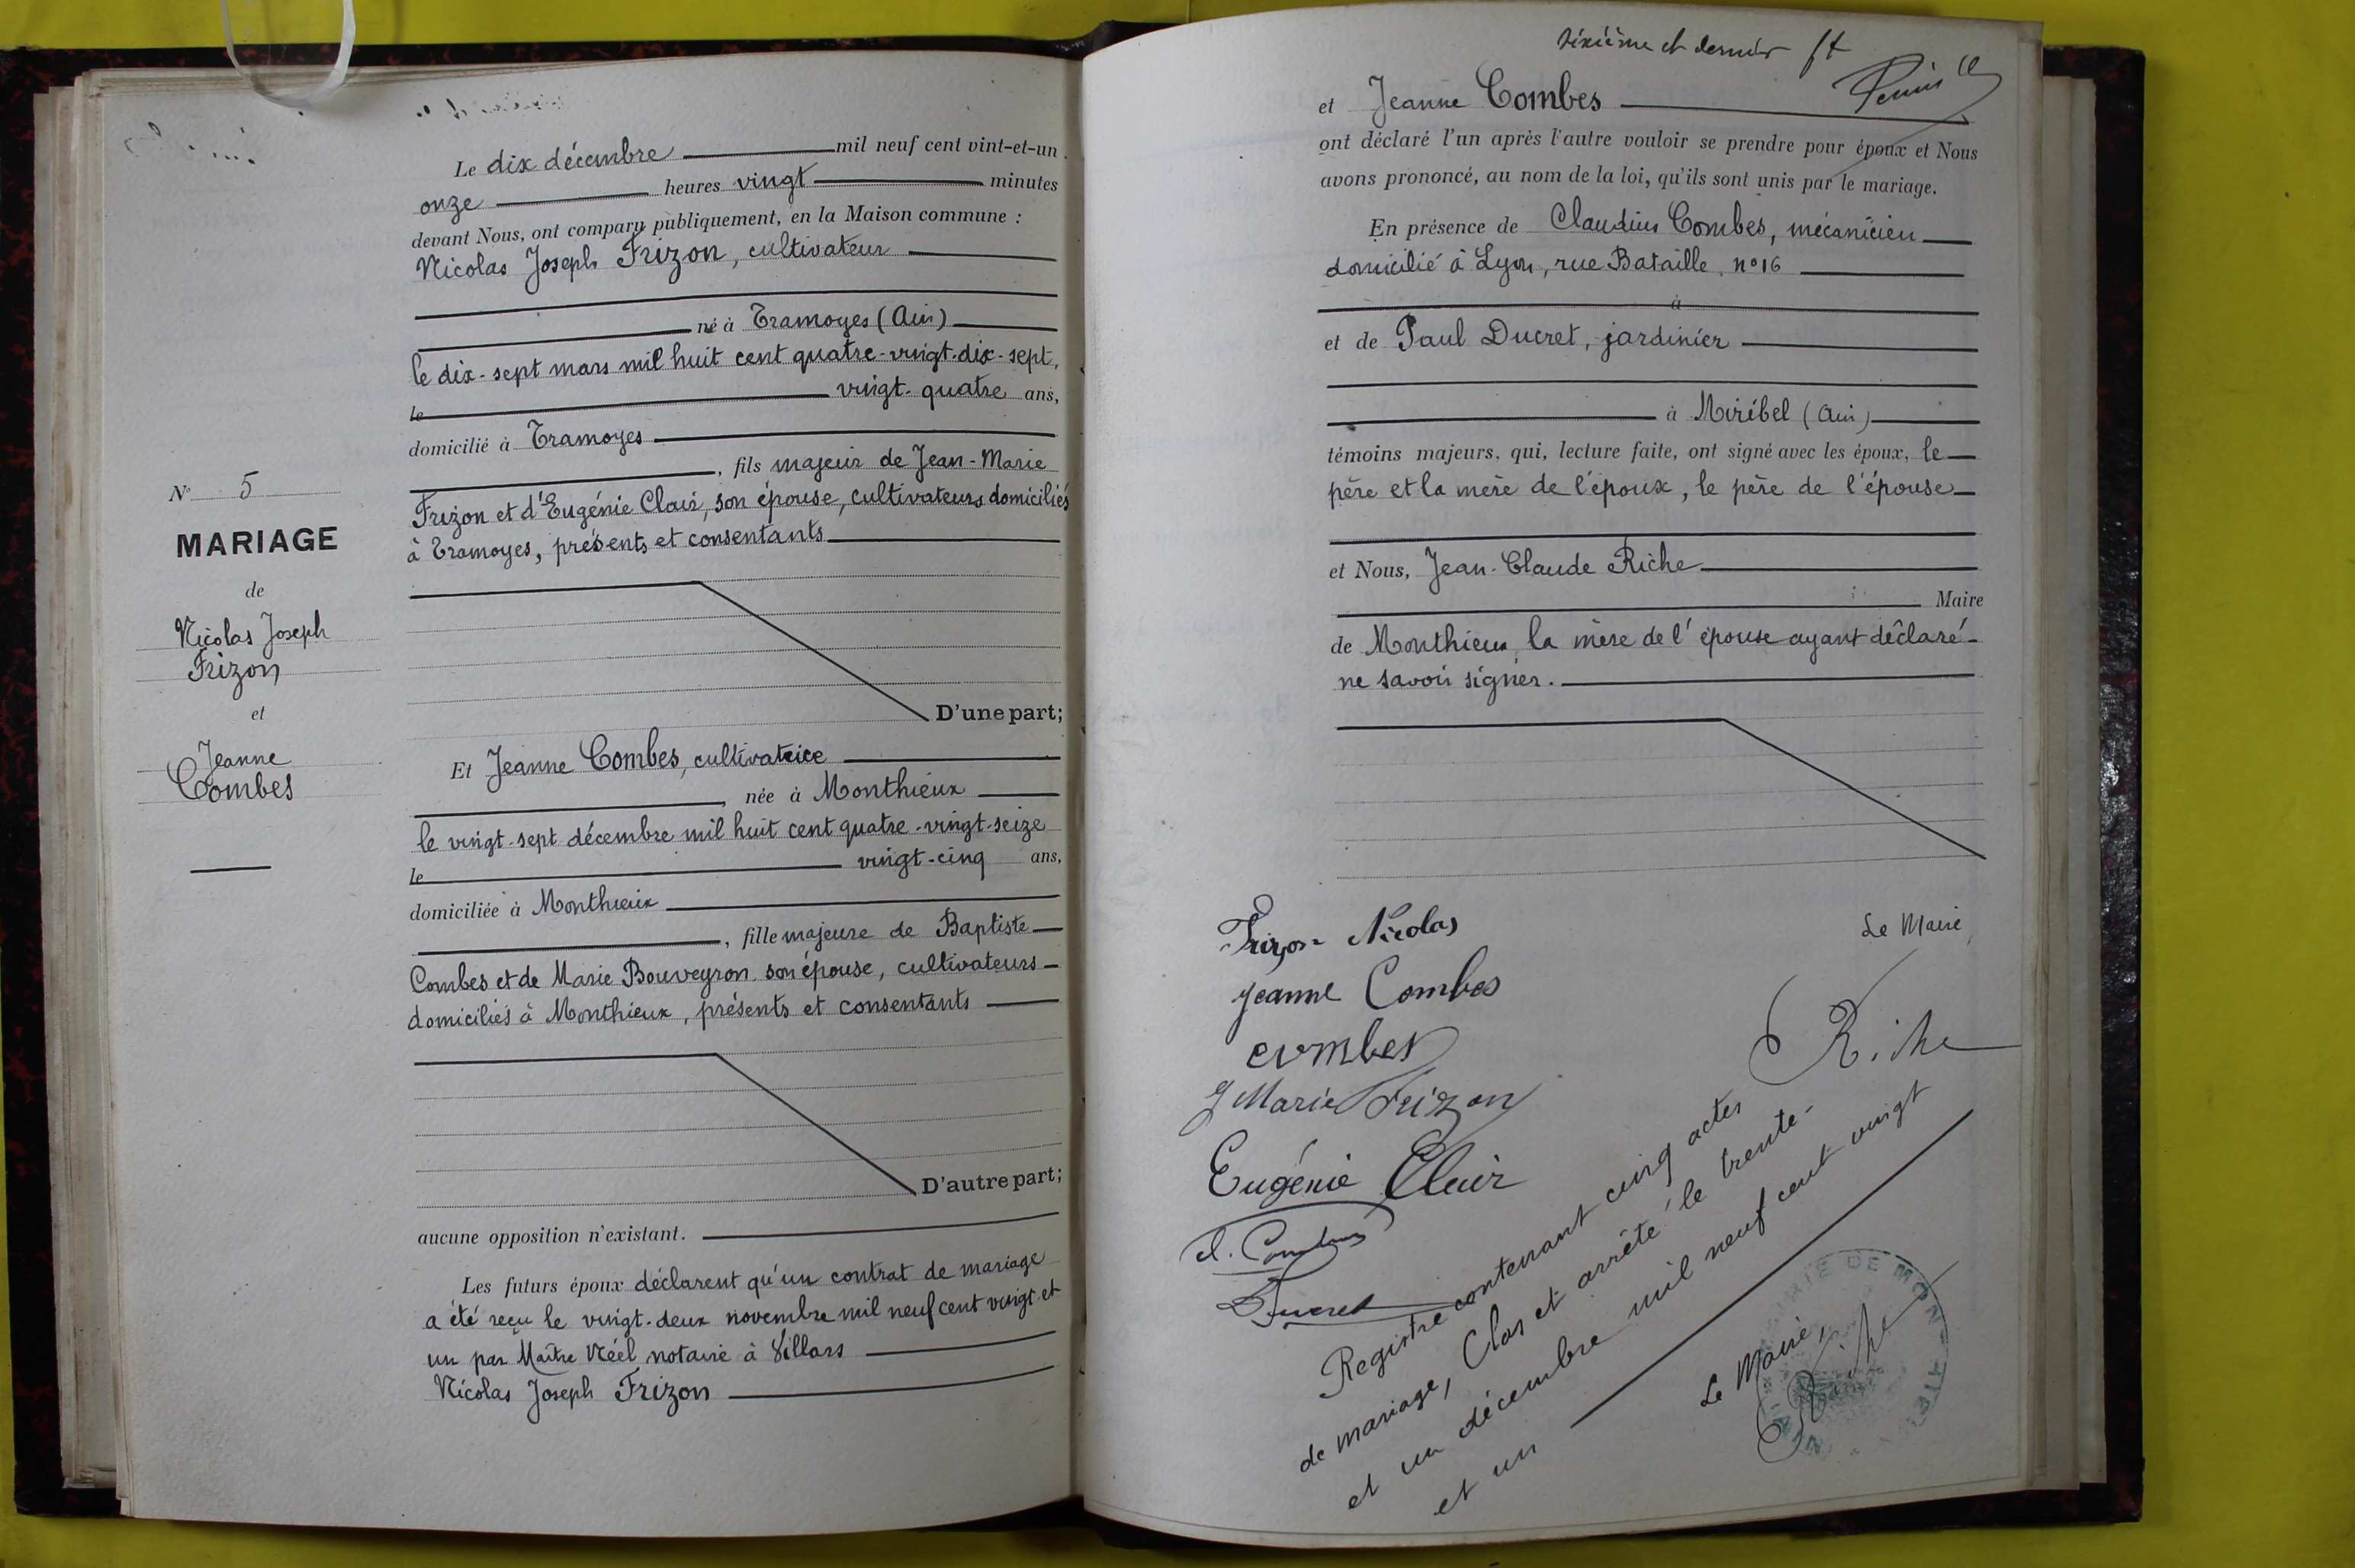 Le dix décembre mil neuf cent vint-et-un
onze heures vingt minutes
devant Nous, ont comparu publiquement, en la Maison commune :
Nicolas Joseph Frizon, cultivateur
né à Tramoyes (Ain)
le dix-sept mars mil huit cent quatre-vingt-dix-sept,
le vingt-quatre ans,
domicilié à Tramoyes
, fils majeur de Jean-Marie
Frizon et d'Eugénie Clair, son épouse, cultivateurs domiciliés
à Tramoyes, présents et consentants
D'une part;
N° 5
MARIAGE
de
Nicolas Joseph
Frizon
et
Jeanne
Combes
Et Jeanne Combes, cultivatrice
, née à Monthieux
le vingt-sept décembre mil huit cent quatre-vingt-seize
le vingt-cinq ans,
domiciliée à Monthieux
, fille majeure de Baptiste
Combes et de Marie Bouveyron son épouse, cultivateurs
domiciliés à Monthieux, présents et consentants
D'autre part;
aucune opposition n'existant.
Les futurs époux déclarent qu'un contrat de mariage
a été reçu le vingt-deux novembre mil neuf cent vingt-et
un par Maître Néel notaire à Villars
Nicolas Joseph Frizon
sixième et dernier ft
et Jeanne Combes
ont déclaré l'un après l'autre vouloir se prendre pour époux et Nous
avons prononcé, au nom de la loi, qu'ils sont unis par le mariage.
En présence de Claudius Combes, mécanicien
domicilié à Lyon, rue Bataille, n° 16
à
et de Paul Ducret, jardinier
à Miribel (Ain)
témoins majeurs, qui, lecture faite, ont signé avec les époux, le
père et la mère de l'époux, le père de l'épouse
et Nous, Jean-Claude Riche
Maire
de Monthieux, la mère de l'épouse ayant déclaré
ne savoir signer.
Frizon Nicolas
Le Maire
Jeanne Combes
Riche
combes
J Marie Frizon
Eugénie Clair
Cl. Combes
Ducret
Registre contenant cinq actes
de mariage, Clos et arrêté le trente
et un décembre mil neuf cent vingt
et un
Le Maire,
Riche
MAIRIE DE MON